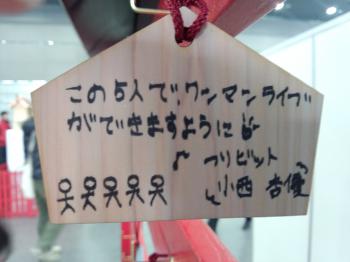 この5人で、ワンマンライブ
ができますように
フリビット
小西 杏優